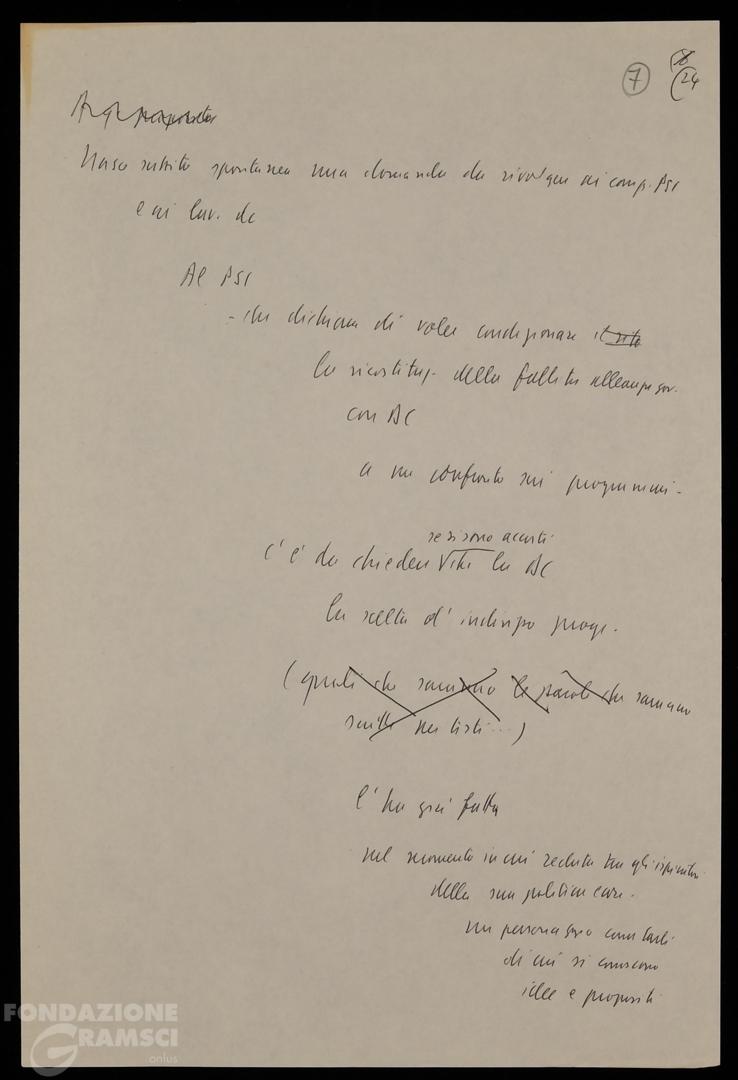 7
24
A qs proposito
Nasce subito spontanea una domanda da rivolgere ai comp. PSI
e ai lav. dc
Al PSI
- che dichiara di voler condizionare il
la ricostituz. della fallita alleanza gov.
con DC
a un confronto sui programmi -
se si sono accorti
c'è da chiedere che la DC
la scelta d'indirizzo progr.
(quali che saranno le parole che saranno
scritte nei testi...)
l'ha già fatta
nel momento in cui recluta tra gli ispiratori
della sua politica econ.
un personaggio come Carli
di cui si conoscono
idee e propositi
FONDAZIONE
GRAMSCI
onlus